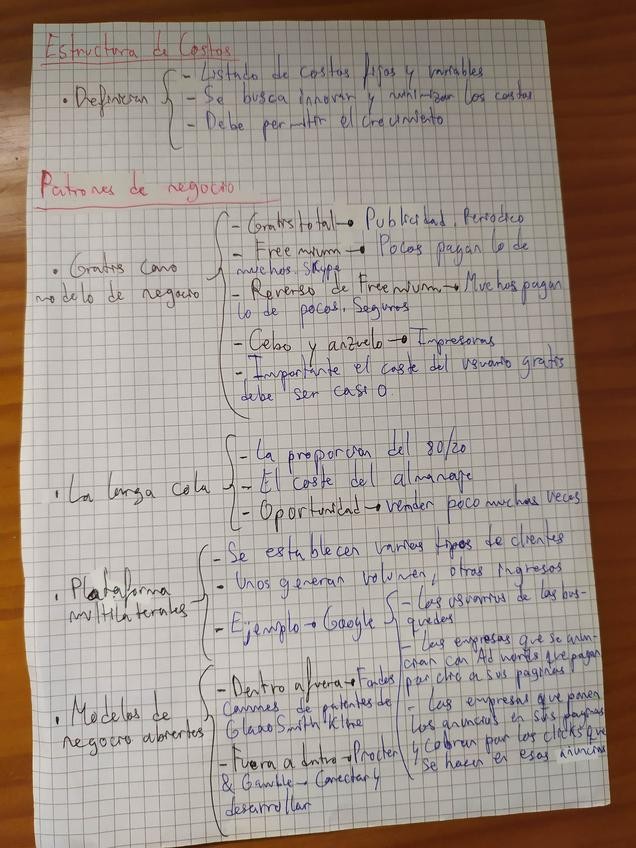 Estructura de Costos
• Definición
- Listado de costos fijos y variables
- Se busca innovar y minimizar los costos
- Debe permitir el crecimiento
Patrones de negocio
• Gratis como
modelo de negocio
- Gratis total → Publicidad. Periódico
- Freemium → Pocos pagan lo de
muchos. Skype
- Reverso de Freemium → Muchos pagan
lo de pocos. Seguros
- Cebo y anzuelo → Impresoras
- Importante el coste del usuario gratis
debe ser casi 0.
• La larga cola
- La proporción del 80/20
- El coste del almanaje
- Oportunidad → vender poco muchas veces
• Plataforma
multilaterales
- Se establecen varios tipos de clientes
- Unos generan volumen, otros ingresos
- Ejemplo → Google
- Los usuarios de las bus-
quedas
- Las empresas que se anun-
cian con Ad words que pagan
por clic a sus paginas
- Las empresas que ponen
los anuncios en sus paginas
y cobran por los clicks que
se hacen en esos anuncios
• Modelos de
negocio abiertos
- Dentro afuera → Fondos
comunes de patentes de
Glaxo Smith Kline
- Fuera a dntro → Procter
& Gamble → Conectar y
desarrollar